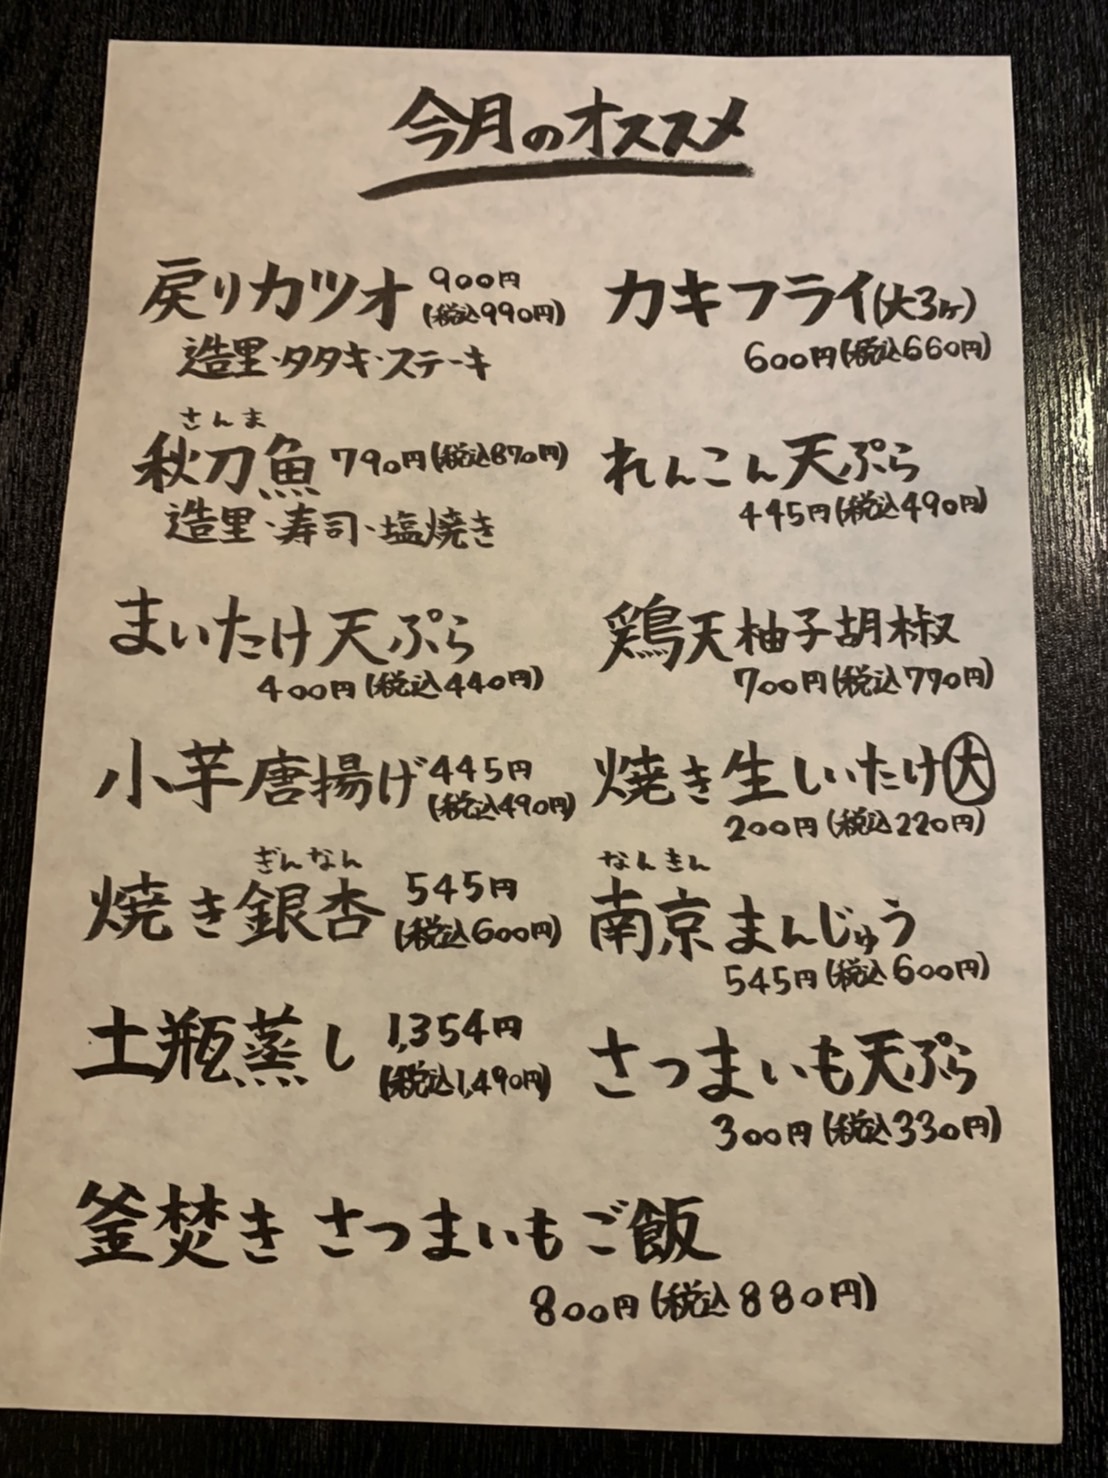 今月のオススメ
戻りカツオ 900円
(税込990円)
造里・タタキ・ステーキ
カキフライ(大3ヶ)
600円(税込660円)
さんま
秋刀魚 790円(税込870円)
造里・寿司・塩焼き
れんこん天ぷら
445円(税込490円)
まいたけ天ぷら
400円(税込440円)
鶏天柚子胡椒
700円(税込770円)
小芋唐揚げ 445円
(税込490円)
焼き生しいたけ大
200円(税込220円)
ぎんなん
焼き銀杏 545円
(税込600円)
なんきん
南京まんじゅう
545円(税込600円)
土瓶蒸し 1,354円
(税込1,490円)
さつまいも天ぷら
300円(税込330円)
釜焚きさつまいもご飯
800円(税込880円)